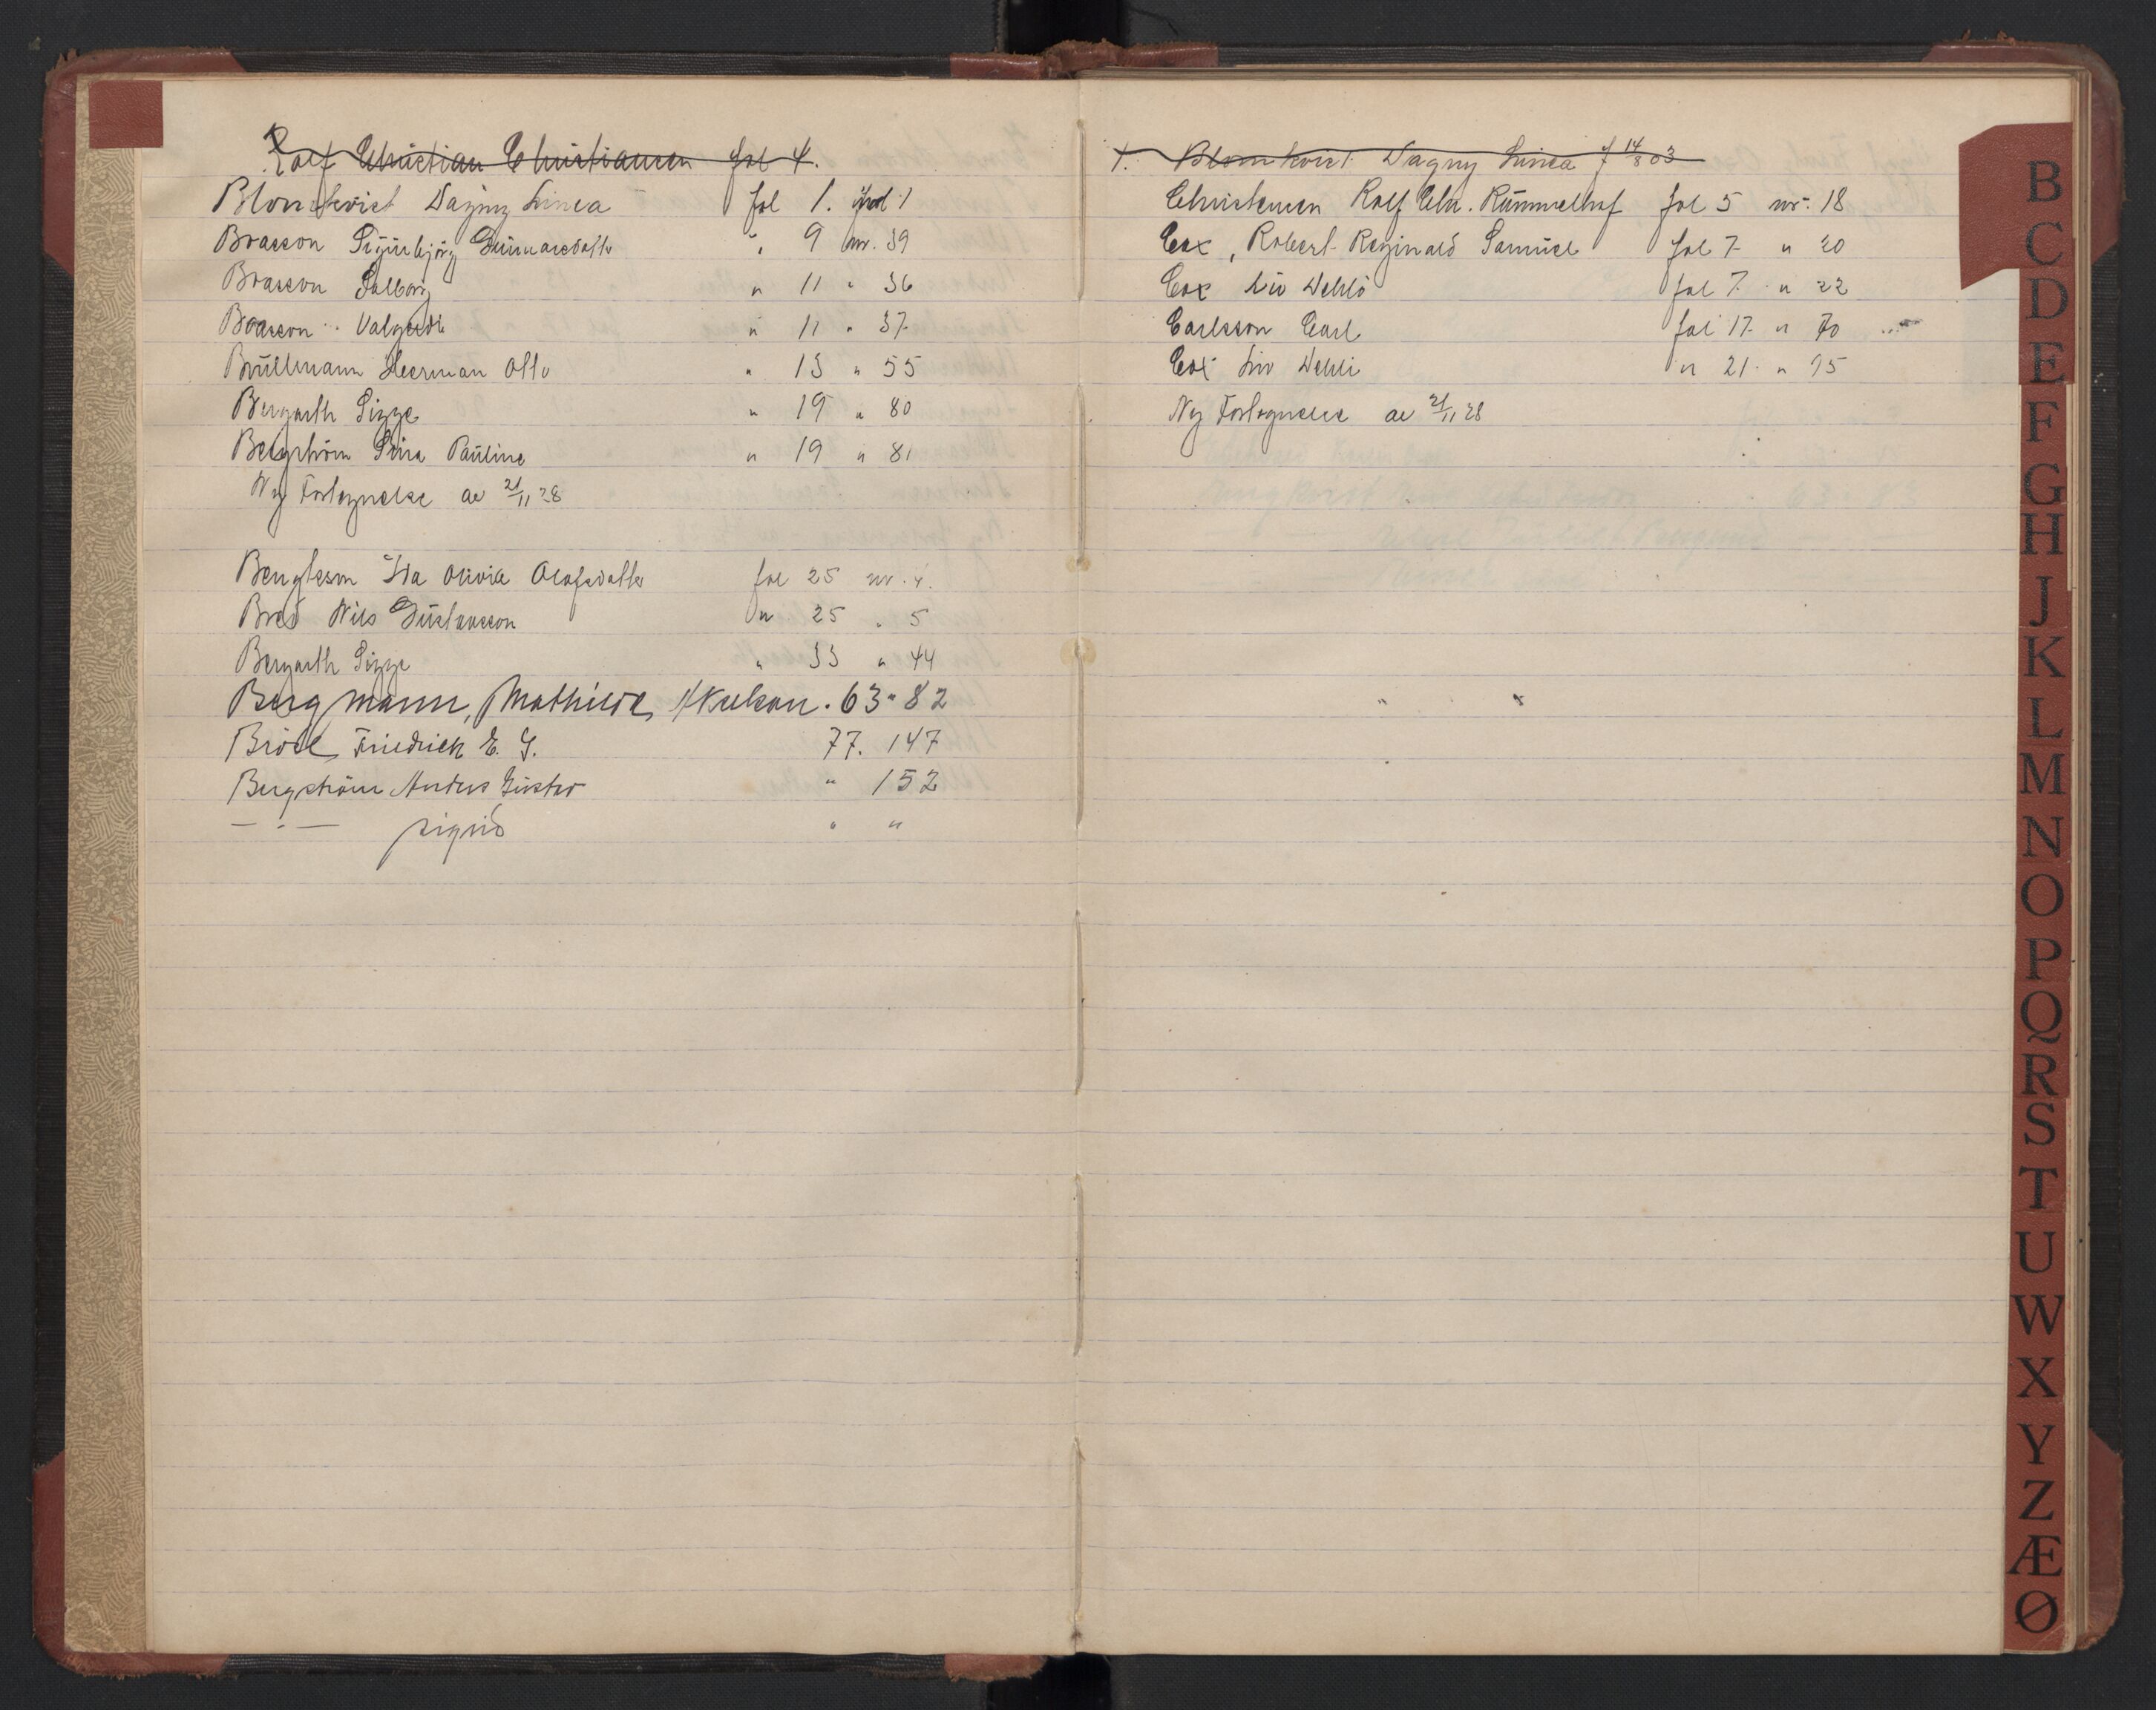 Rolf Christian Christiansen fol 4.
Blomkvist Dagny Linea fol 1. 1
Brasson Sigurbjörg Gunnarsdatter " 9 nr. 39
Brasson Solborg " 11 " 36
Brasson Valgerdi " 11 " 37
Brüllmann Herman Otto " 13 " 55
Bergarth Sigge " 19 " 80
Bergström Stina Pauline " 19 " 81
Ny Fortegnelse av 21/11 28
Bengtsson Ida Olivia Olofsdatter fol 25 nr. 4.
Bred Nils Gustavsson " 25 " 5
Bergarth Sigge " 33 " 44
Bergmann, Mathilde 63 " 82
Bröse Friedrich E. G. 77. 147
Bergström Anders Gustav " 152
— " — Sigrid " "
1. Blomkvist Dagny Linea f 14/8 03
Christensen Rolf Chr. Rummelhof fol 5 nr. 18
Cox, Robert Reginald Samuel fol 7 " 20
Cox Liv Dehli fol 7 " 22
Carlsson Carl fol 17 " 70
Cox Liv Dehli " 21 " 95
Ny Fortegnelse av 21/11 28
B
C
D
E
F
G
H
J
K
L
M
N
O
P
Q
R
S
T
U
W
X
Y
Z
Æ
Ø